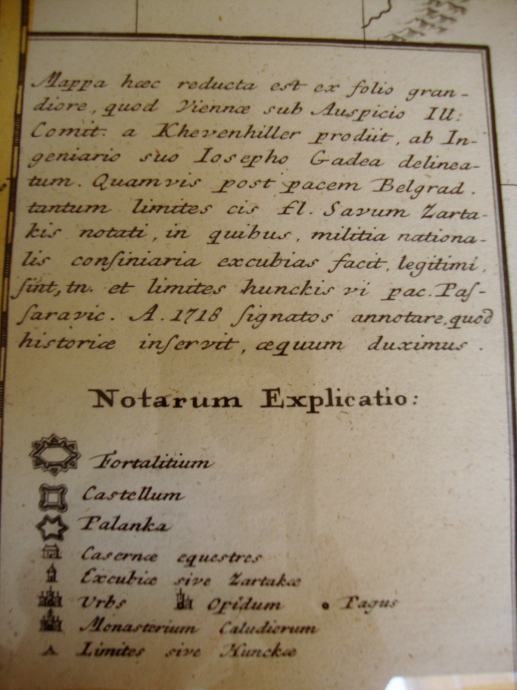 Mappa hæc reducta est ex folio gran-
diore, quod Viennæ sub Auspicio Ill:
Comit. a Khevenhiller prodiit, ab In-
geniario suo Iosepho Gadea delinea-
tum. Quamvis post pacem Belgrad.
tantum limites cis fl. Savum Zarta-
kis notati, in quibus, militia nationa-
lis confiniaria excubias facit, legitimi,
ſint, tn. et limites hunckis vi pac. Paſ-
ſaravic. A. 1718 ſignatos annotare, quod
historiæ inſervit, æquum duximus.
Notarum Explicatio:
Fortalitium
Castellum
Palanka
Casernæ equestres
Excubiæ sive Zartakæ
Urbs Opidum Pagus
Monasterium Caludierum
Limites sive Hunckæ